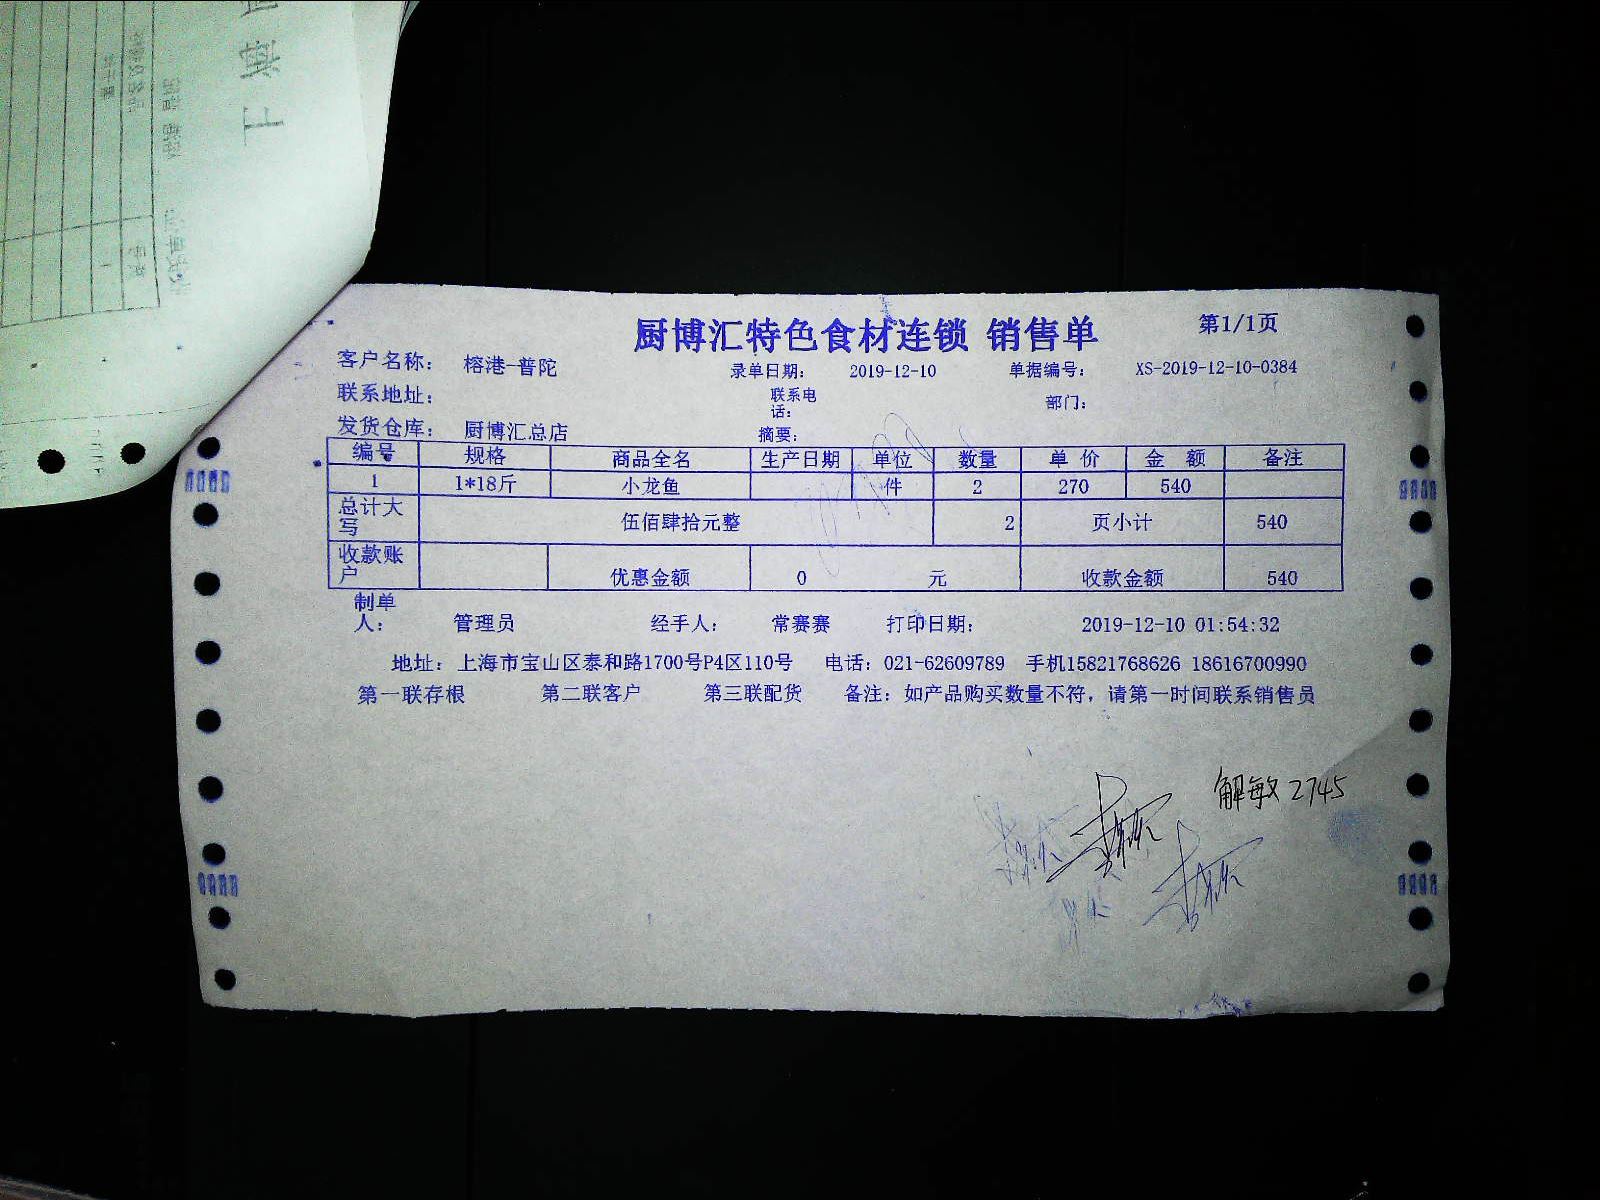 厨博汇特色食材连锁 销售单 第1/1页
客户名称： 榕港-普陀 录单日期： 2019-12-10 单据编号： XS-2019-12-10-0384
联系地址： 联系电话： 部门：
发货仓库： 厨博汇总店 摘要：
编号 规格 商品全名 生产日期 单位 数量 单 价 金 额 备注
1 1*18斤 小龙鱼 件 2 270 540
总计大写 伍佰肆拾元整 2 页小计 540
收款账户 优惠金额 0 元 收款金额 540
制单人： 管理员 经手人： 常赛赛 打印日期： 2019-12-10 01:54:32
地址：上海市宝山区泰和路1700号P4区110号 电话：021-62609789 手机15821768626 18616700990
第一联存根 第二联客户 第三联配货 备注：如产品购买数量不符，请第一时间联系销售员
解敏 2745